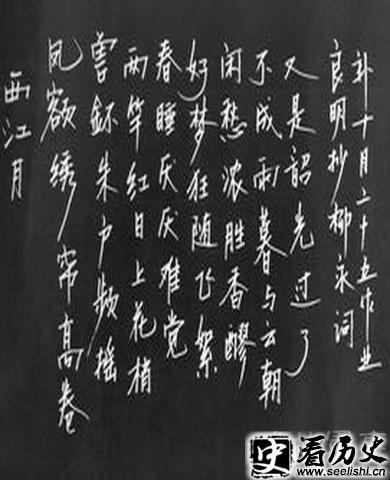 西江月
凤额绣帘高卷
兽环朱户频摇
两竿红日上花梢
春睡厌厌难觉
好梦狂随飞絮
闲愁浓胜香醪
不成雨暮与云朝
又是韶光过了
良明抄柳永词
补十月二十五作业
史 看历史
www.seelishi.cn